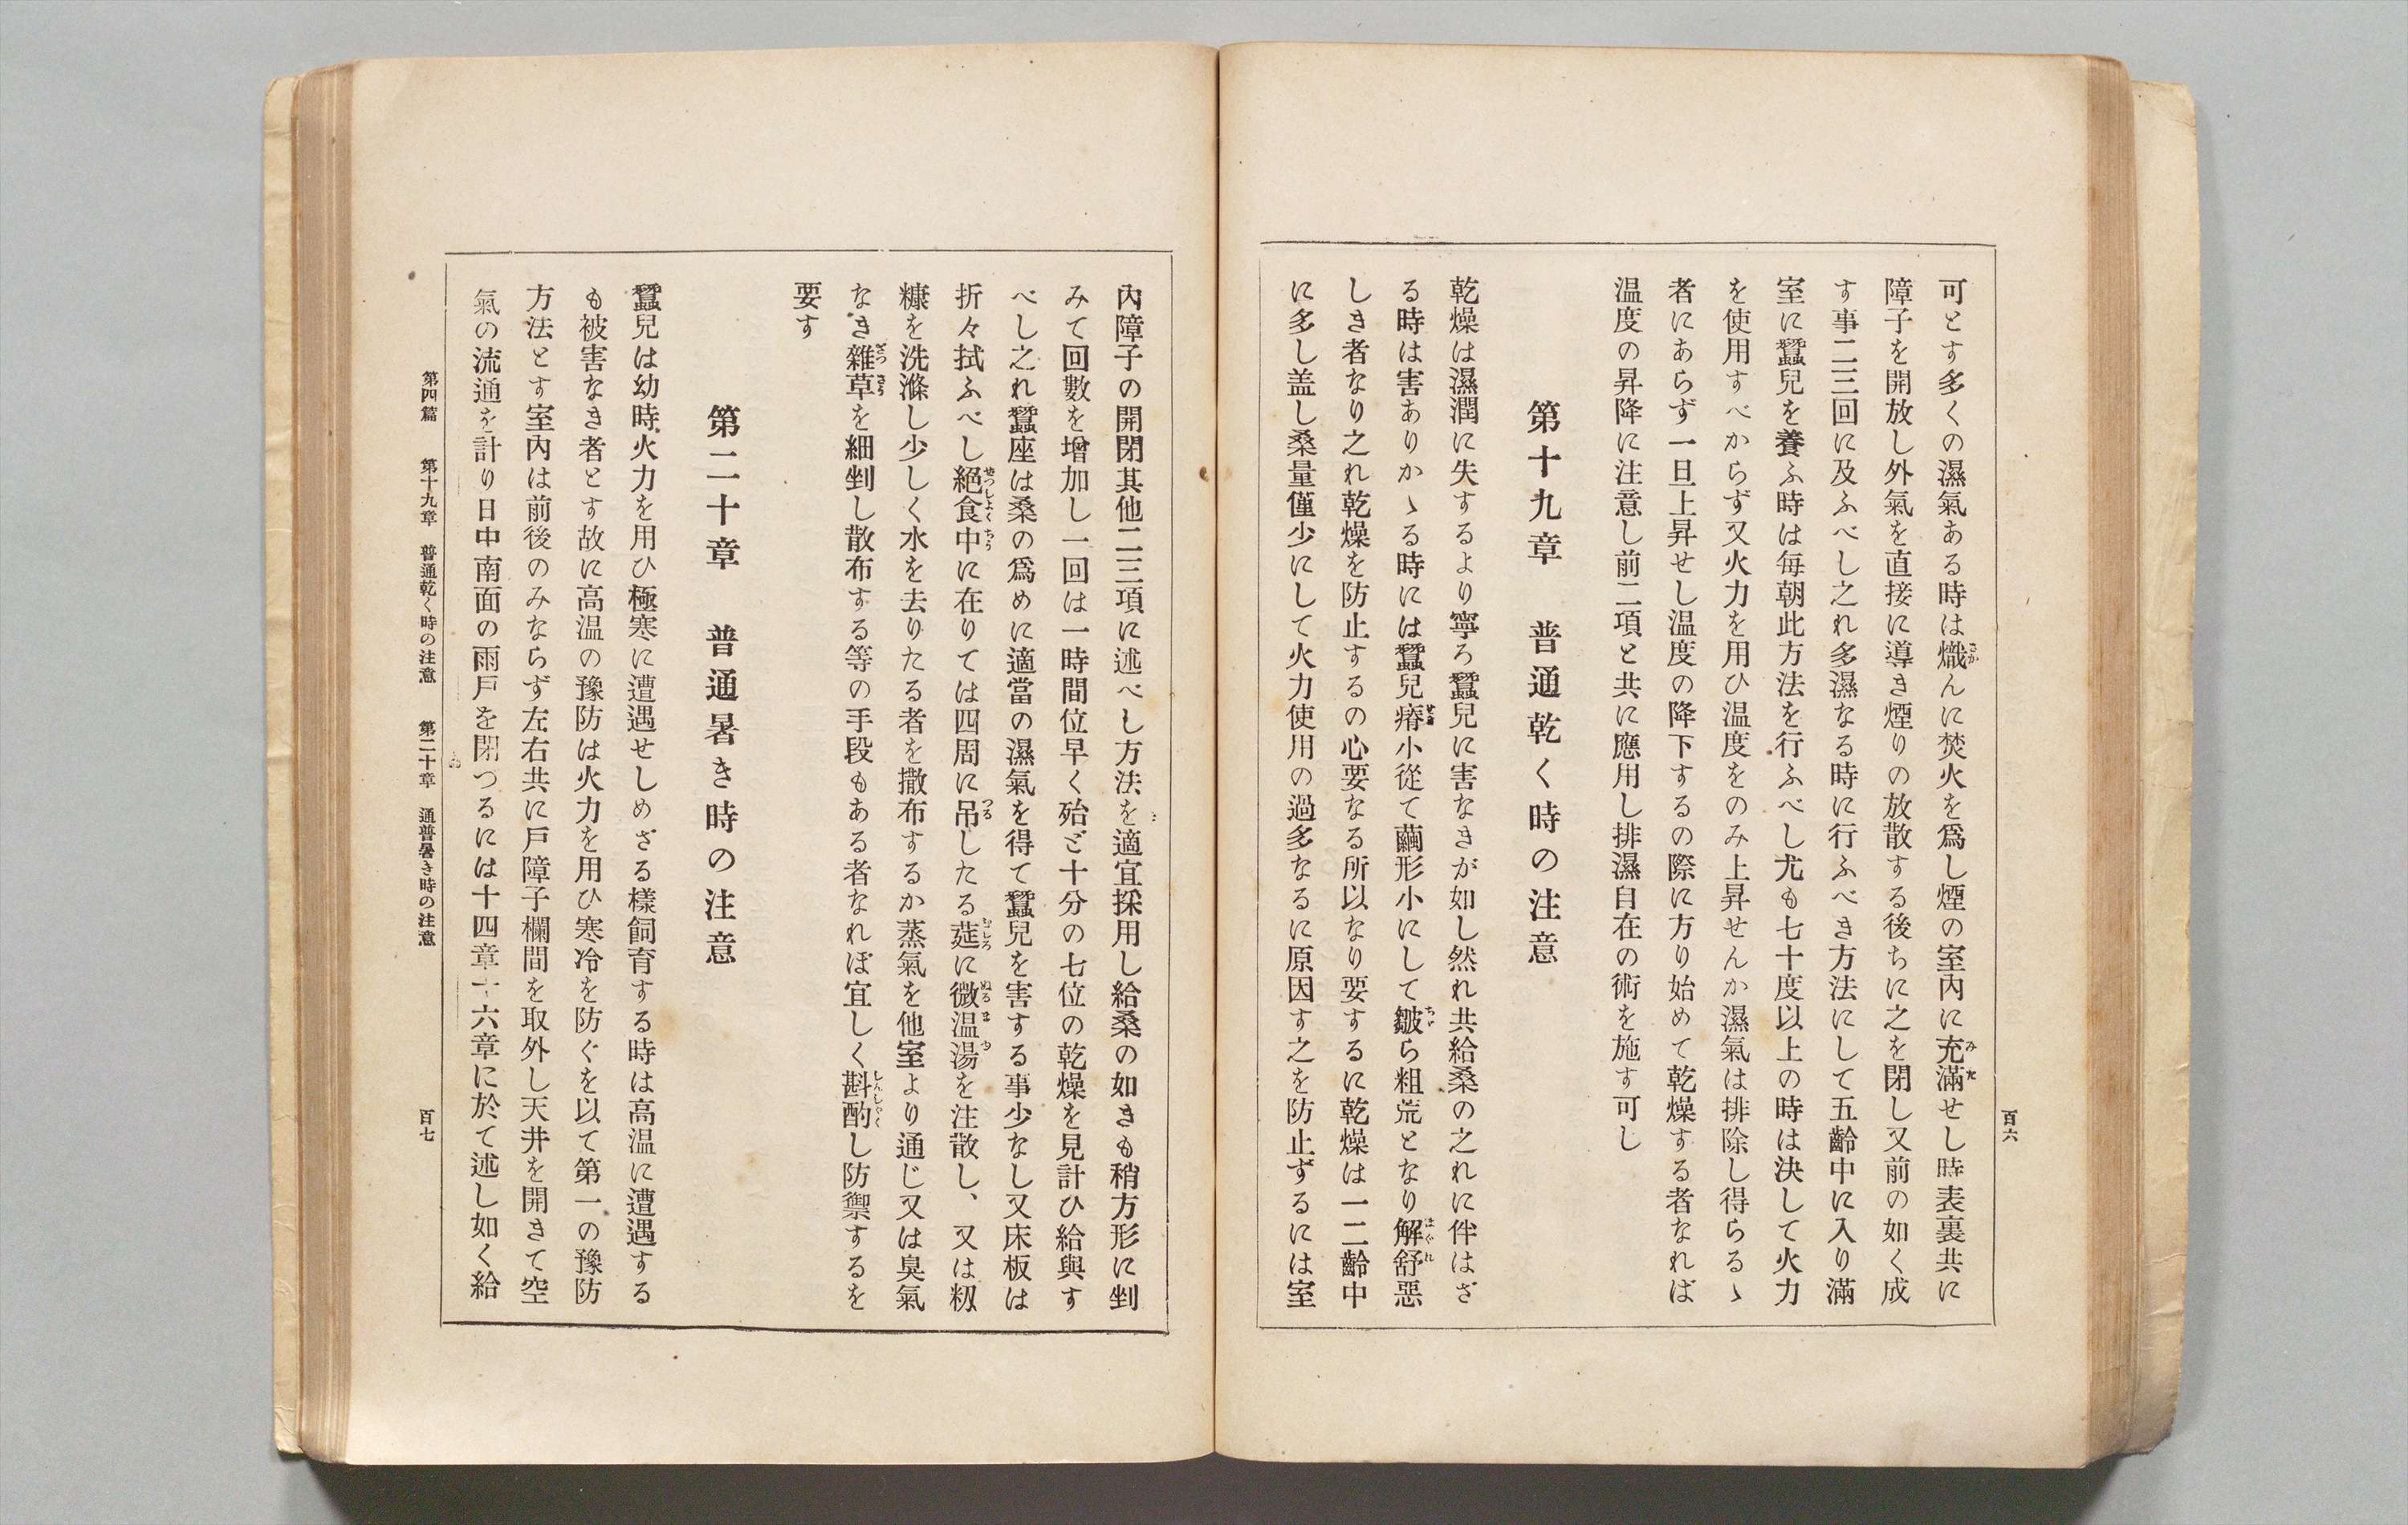 百六
可とす多くの濕氣ある時は熾んに焚火を爲し煙の室內に充滿せし時表裏共に
障子を開放し外氣を直接に導き煙りの放散する後ちに之を閉し又前の如く成
す事二三回に及ふべし之れ多濕なる時に行ふべき方法にして五齡中に入り滿
室に蠶兒を養ふ時は每朝此方法を行ふべし尤も七十度以上の時は決して火力
を使用すべからず又火力を用ひ溫度をのみ上昇せんか濕氣は排除し得らるゝ
者にあらず一旦上昇せし溫度の降下するの際に方り始めて乾燥する者なれば
溫度の昇降に注意し前二項と共に應用し排濕自在の術を施す可し
第十九章　普通乾く時の注意
乾燥は濕潤に失するより寧ろ蠶兒に害なきが如し然れ共給桑の之れに伴はざ
る時は害ありかゝる時には蠶兒瘠小從て繭形小にして皺ら粗荒となり解舒惡
しき者なり之れ乾燥を防止するの心要なる所以なり要するに乾燥は一二齡中
に多し盖し桑量僅少にして火力使用の過多なるに原因す之を防止ずるには室
內障子の開閉其他二三項に述べし方法を適宜採用し給桑の如きも稍方形に剉
みて回數を增加し一回は一時間位早く殆ど十分の七位の乾燥を見計ひ給與す
べし之れ蠶座は桑の爲めに適當の濕氣を得て蠶兒を害する事少なし又床板は
折々拭ふべし絕食中に在りては四周に吊したる莚に微温湯を注散し、又は籾
糠を洗滌し少しく水を去りたる者を撒布するか蒸氣を他室より通じ又は臭氣
なき雜草を細剉し散布する等の手段もある者なれば宜しく斟酌し防禦するを
要す
第二十章　普通暑き時の注意
蠶兒は幼時火力を用ひ極寒に遭遇せしめざる樣飼育する時は高温に遭遇する
も被害なき者とす故に高温の豫防は火力を用ひ寒冷を防ぐを以て第一の豫防
方法とす室內は前後のみならず左右共に戶障子欄間を取外し天井を開きて空
氣の流通を計り日中南面の雨戶を閉つるには十四章十六章に於て述し如く給
第四篇　第十九章　普通乾く時の注意　第二十章　通普暑き時の注意　百七